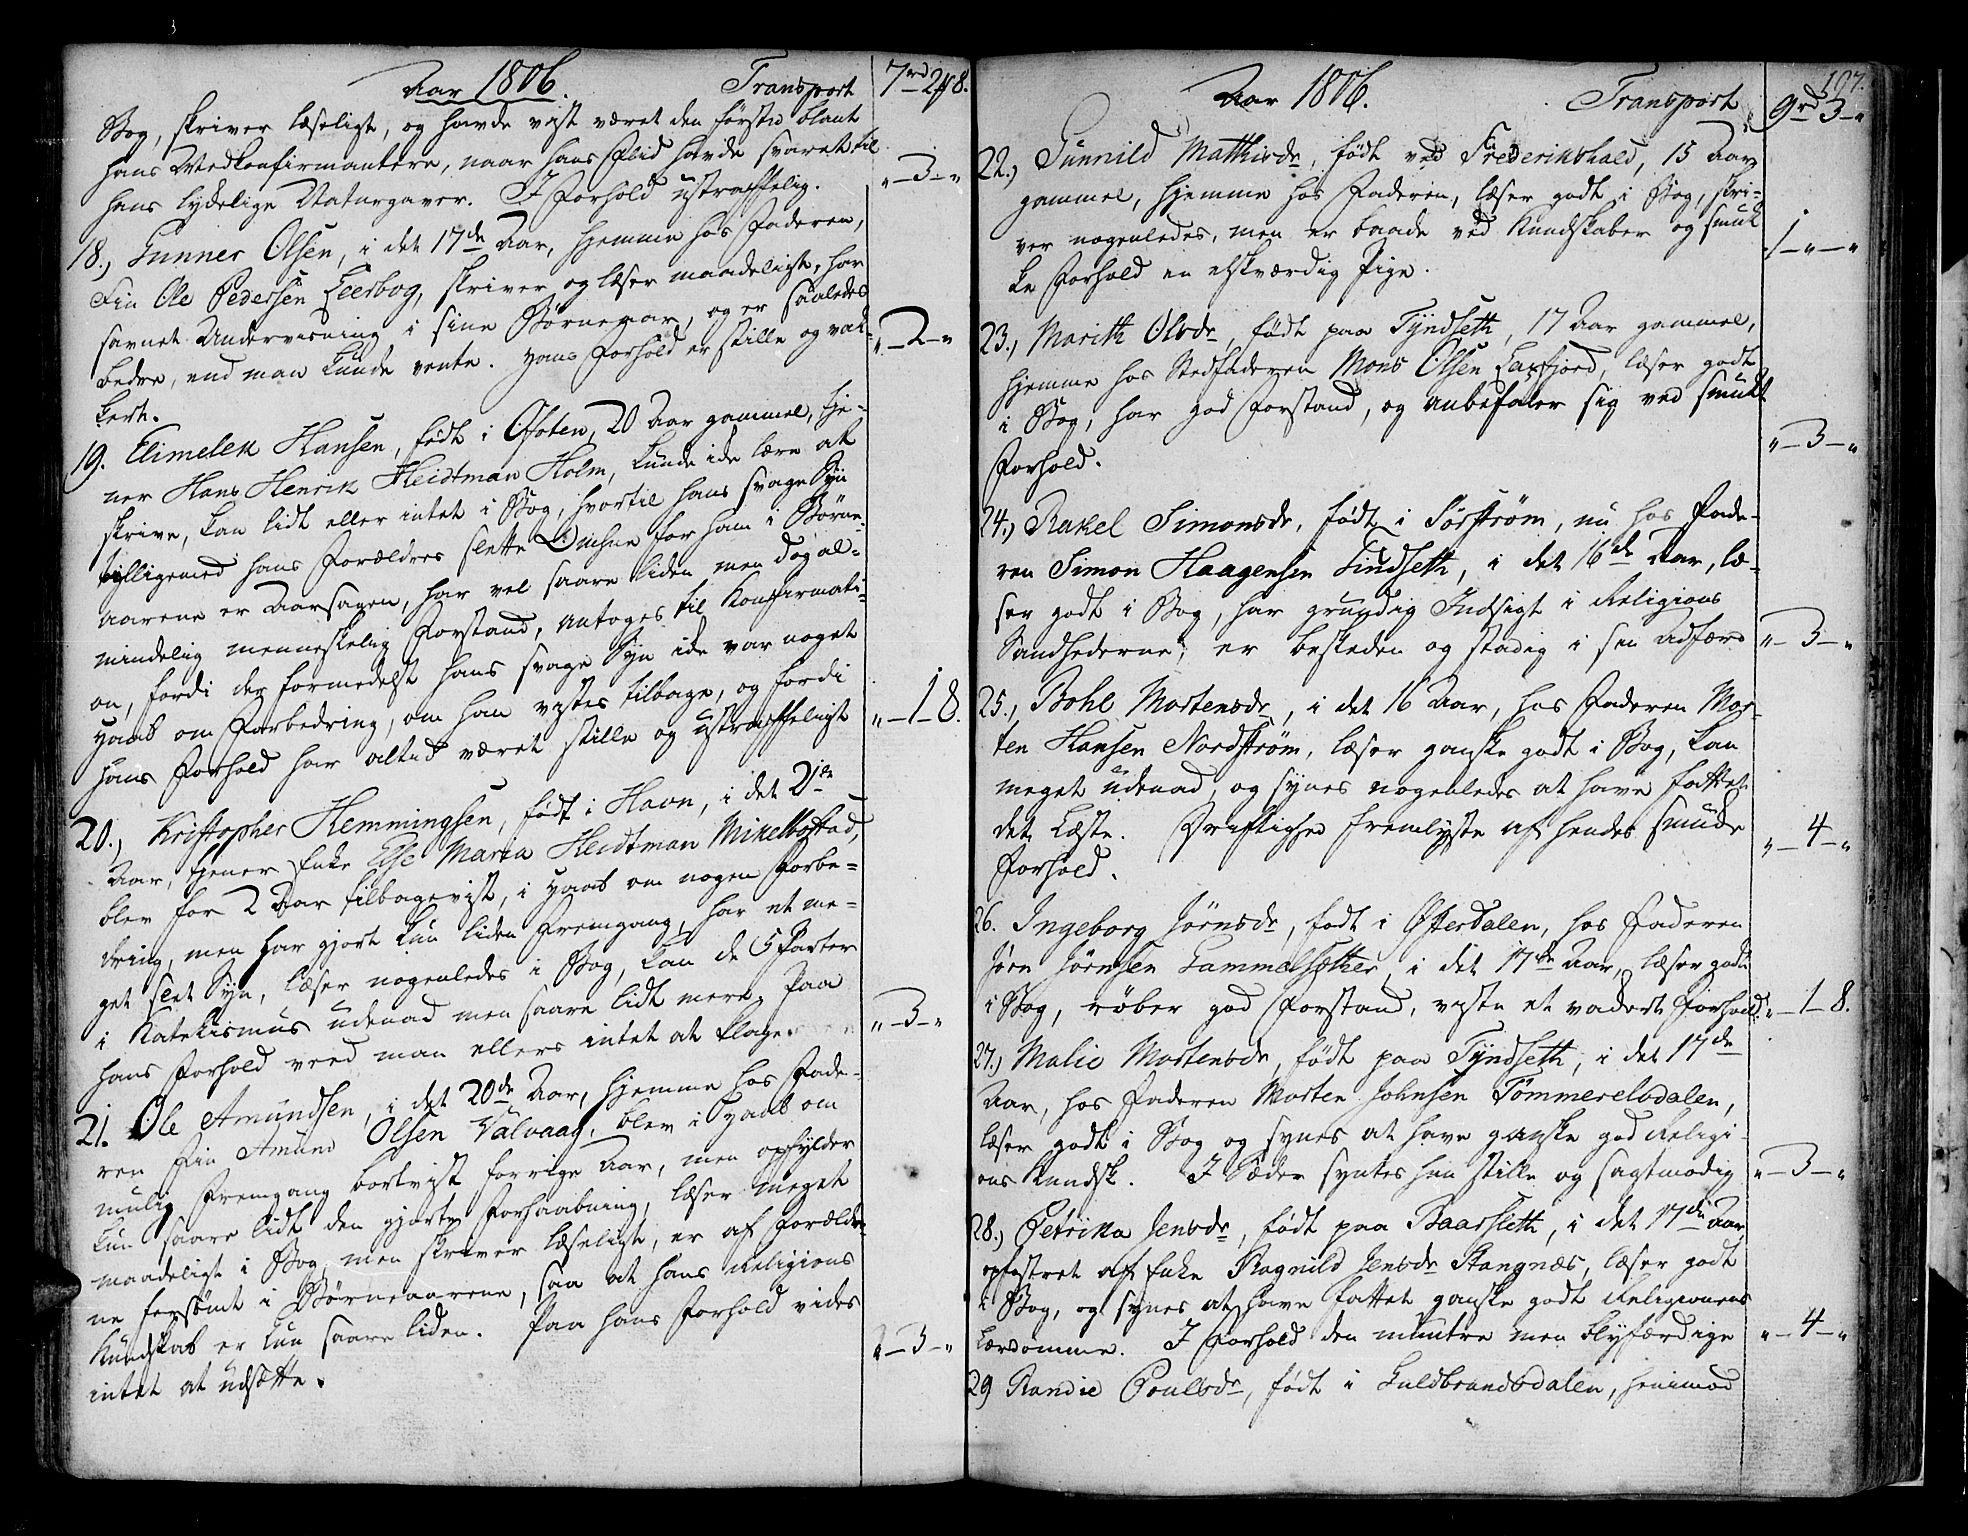 Aar 1806. Transport 7rd 2 48.
Bog, skriver læseligt, og havde vist været den første blant
hans Medkonfirmantere, naar hans Flid havde svaret til
hans lydelige Naturgaver. I Forhold ustraffelig. „–3–„
18., Gunner Olsen, i det 17de Aar, hjemme hos Faderen,
Fin Ole Pedersen Leerbog, skriver og læser maadeligt, har
savnet Underviisning i sine Børneaar, og er saaledes
bedre, end man kunde vente. Hans Forhold er stille og vak- „–2–„
kert.
19. Elimelek Hansen, født i Ofoten, 20 Aar gammel, tje-
ner Hans Henrik Heidtman Holm, kunde ide lære at
skrive, kan lidt eller intet i Bog, hvortil hans svage Syn
tilligemed hans Forældres slette Omhue for ham i Børne-
aarene er Aarsagen, har vel saare liden men dog al-
mindelig menneskelig Forstand, antoges til Konfirmati-
on, fordi der formedelst hans svage Syn ide var noget
Haab om Forbedring, om han vistes tilbage, og fordi
hans Forhold har altid været stille og ustraffeligt „–1–8.
20., Kristopher Hemmingsen, født i Havn, i det 21de
Aar, tjener Enke Else Maria Heidtman Mikelbostad,
blev for 2 Aar tilbageviist, i Haab om nogen Forbe-
dring, men har gjort kun liden Fremgang, har et me-
get slet Syn, læser nogenledes i Bog, kan de 5 Parter
i Katekismus udenad men saare lidt mere. Paa
hans Forhold veed man ellers intet at klage. „–3–„
21. Ole Amundsen, i det 20de Aar, hjemme hos Fade-
ren Fin Amund Olsen Kalvaag, blev i Haab om
mulig Fremgang bortvist forrige Aar, men opfylder
kun saare lidt den gjorte Forhaabning, læser meget
maadeligt i Bog men skriver læseligt, er af Forældre-
ne forsømt i Børneaarene, saa at hans Religions
Kundskab er kun saare liden. Paa hans Forhold vides
intet at udsætte. „–3–„
107.
Aar 1806. Transport 9rd 3–„
22., Gunnild Mathisdr, født ved Frederikshald, 15 Aar
gammel, hjemme hos Faderen, læser godt i Bog, skri-
ver nogenledes, men er baade ved Kundskaber og smuk
ke Forhold en elskværdig Pige. 1–„–„
23., Marith Olsdr, født paa Tyndseth, 17 Aar gammel,
hjemme hos Stedfaderen Mons Olsen Laxfjord, læser godt
i Bog, har god Forstand, og anbefaler sig ved smukt
Forhold. „–3–„
24., Rakel Simonsdr, født i Sørstrøm, nu hos Fade-
ren Simon Haagensen Tindseth, i det 16de Aar, læ-
ser godt i Bog, har grundig Indsigt i Religions
Sandhederne, er beskeden og stadig i sin Adfærd „–3–„
25., Bohl Mortensdr, i det 16 Aar, hos Faderen Mor-
ten Hansen Nordstrøm, læser ganske godt i Bog, kan
meget udenad, og synes nogenledes at have fattet
det Læste. Skriftighed fremlyste af hendes smude
Forhold. „–4–„
26. Ingeborg Jörnsdr, født i Østerdalen, hos Faderen
Jörn Jörnsen Gammelsæther, i det 17de Aar, læser godt
i Bog, røber god Forstand, viste et vakkert Forhold. „–1–8.
27., Malie Mortensdr, født paa Tyndseth, i det 17de
Aar, hos Faderen Morten Johnsen Tømmerelvdalen,
læser godt i Bog og synes at have ganske god Religi-
ons Kundsk. I Sæder syntes hun stille og sagtmodig „–3–„
28., Petrika Jensdr, født paa Baarsleth, i det 17de Aar
opfostret af Enke Ragnild Jensdr Stangnæs, læser godt
i Bog, og synes at have fattet ganske godt Religionens
Lærdomme. I Forhold den muntre men blyfærdige „–4–„
29 Randie Poulsdr, født i Guldbrandsdalen, henimod